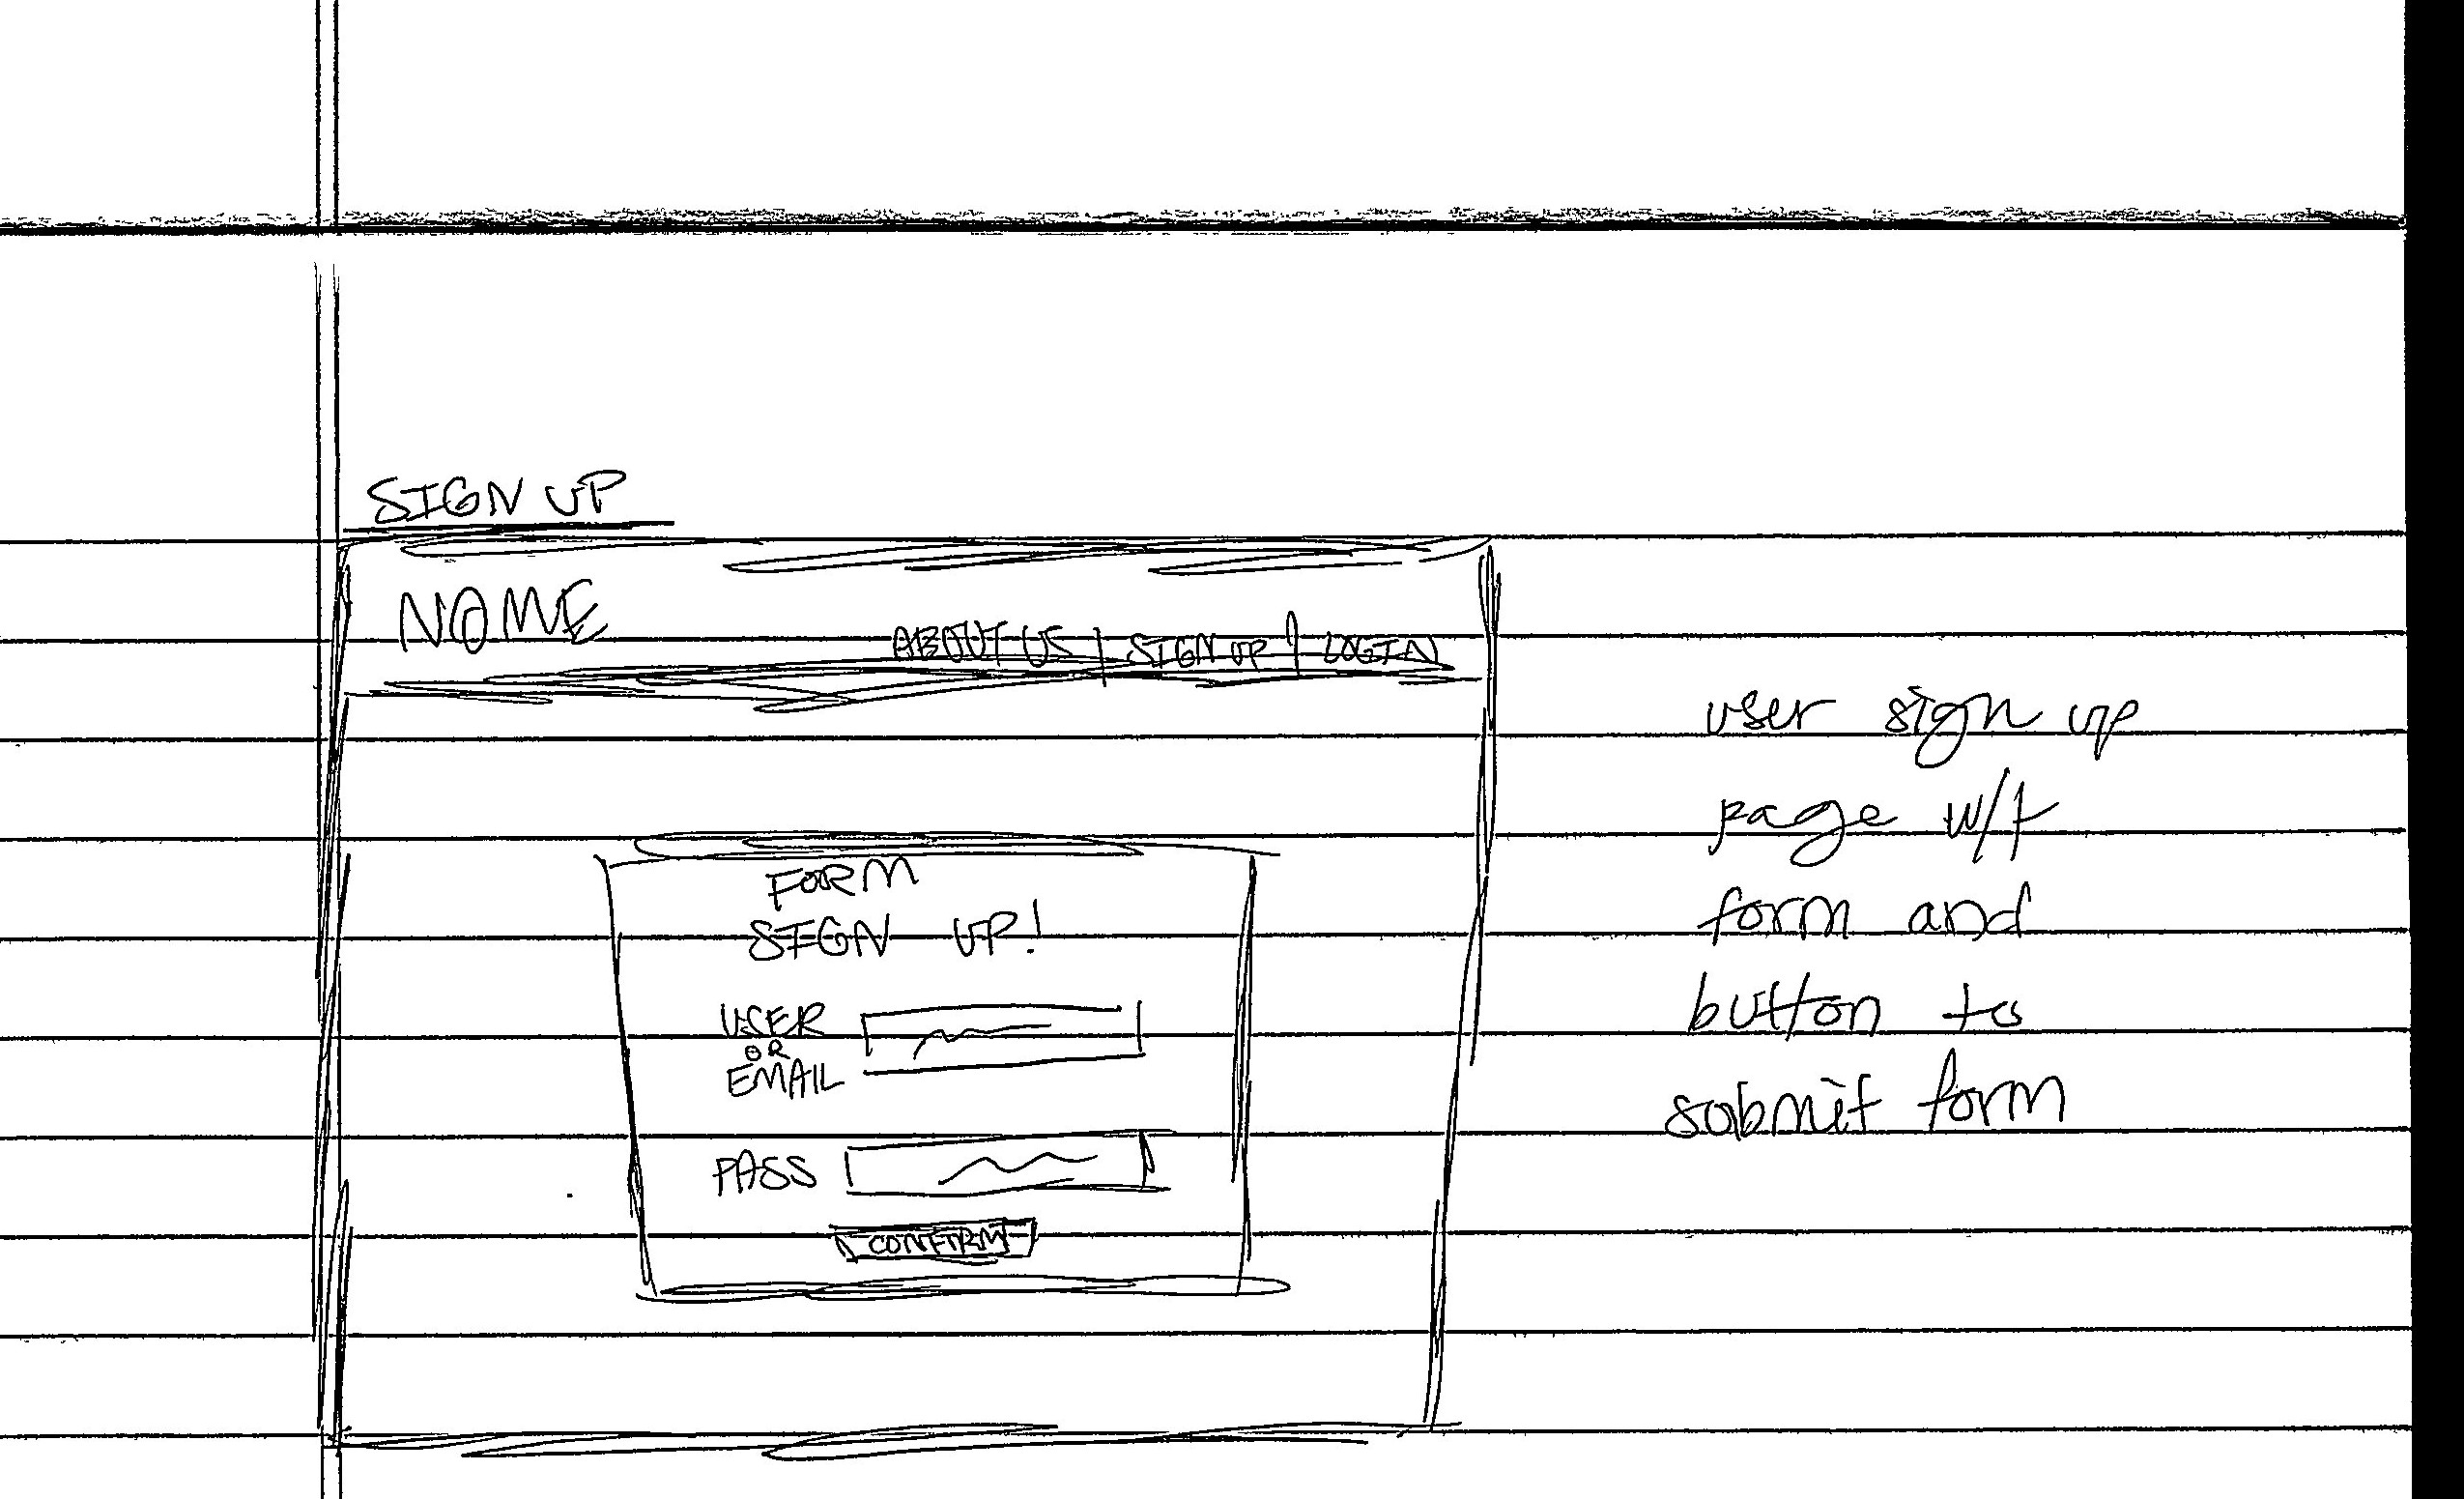 SIGN UP
NOME
ABOUT US | SIGN UP | LOGIN
FORM
SIGN UP!
USER
OR
EMAIL
PASS
CONFIRM
user sign up
page w/t
form and
button to
submit form